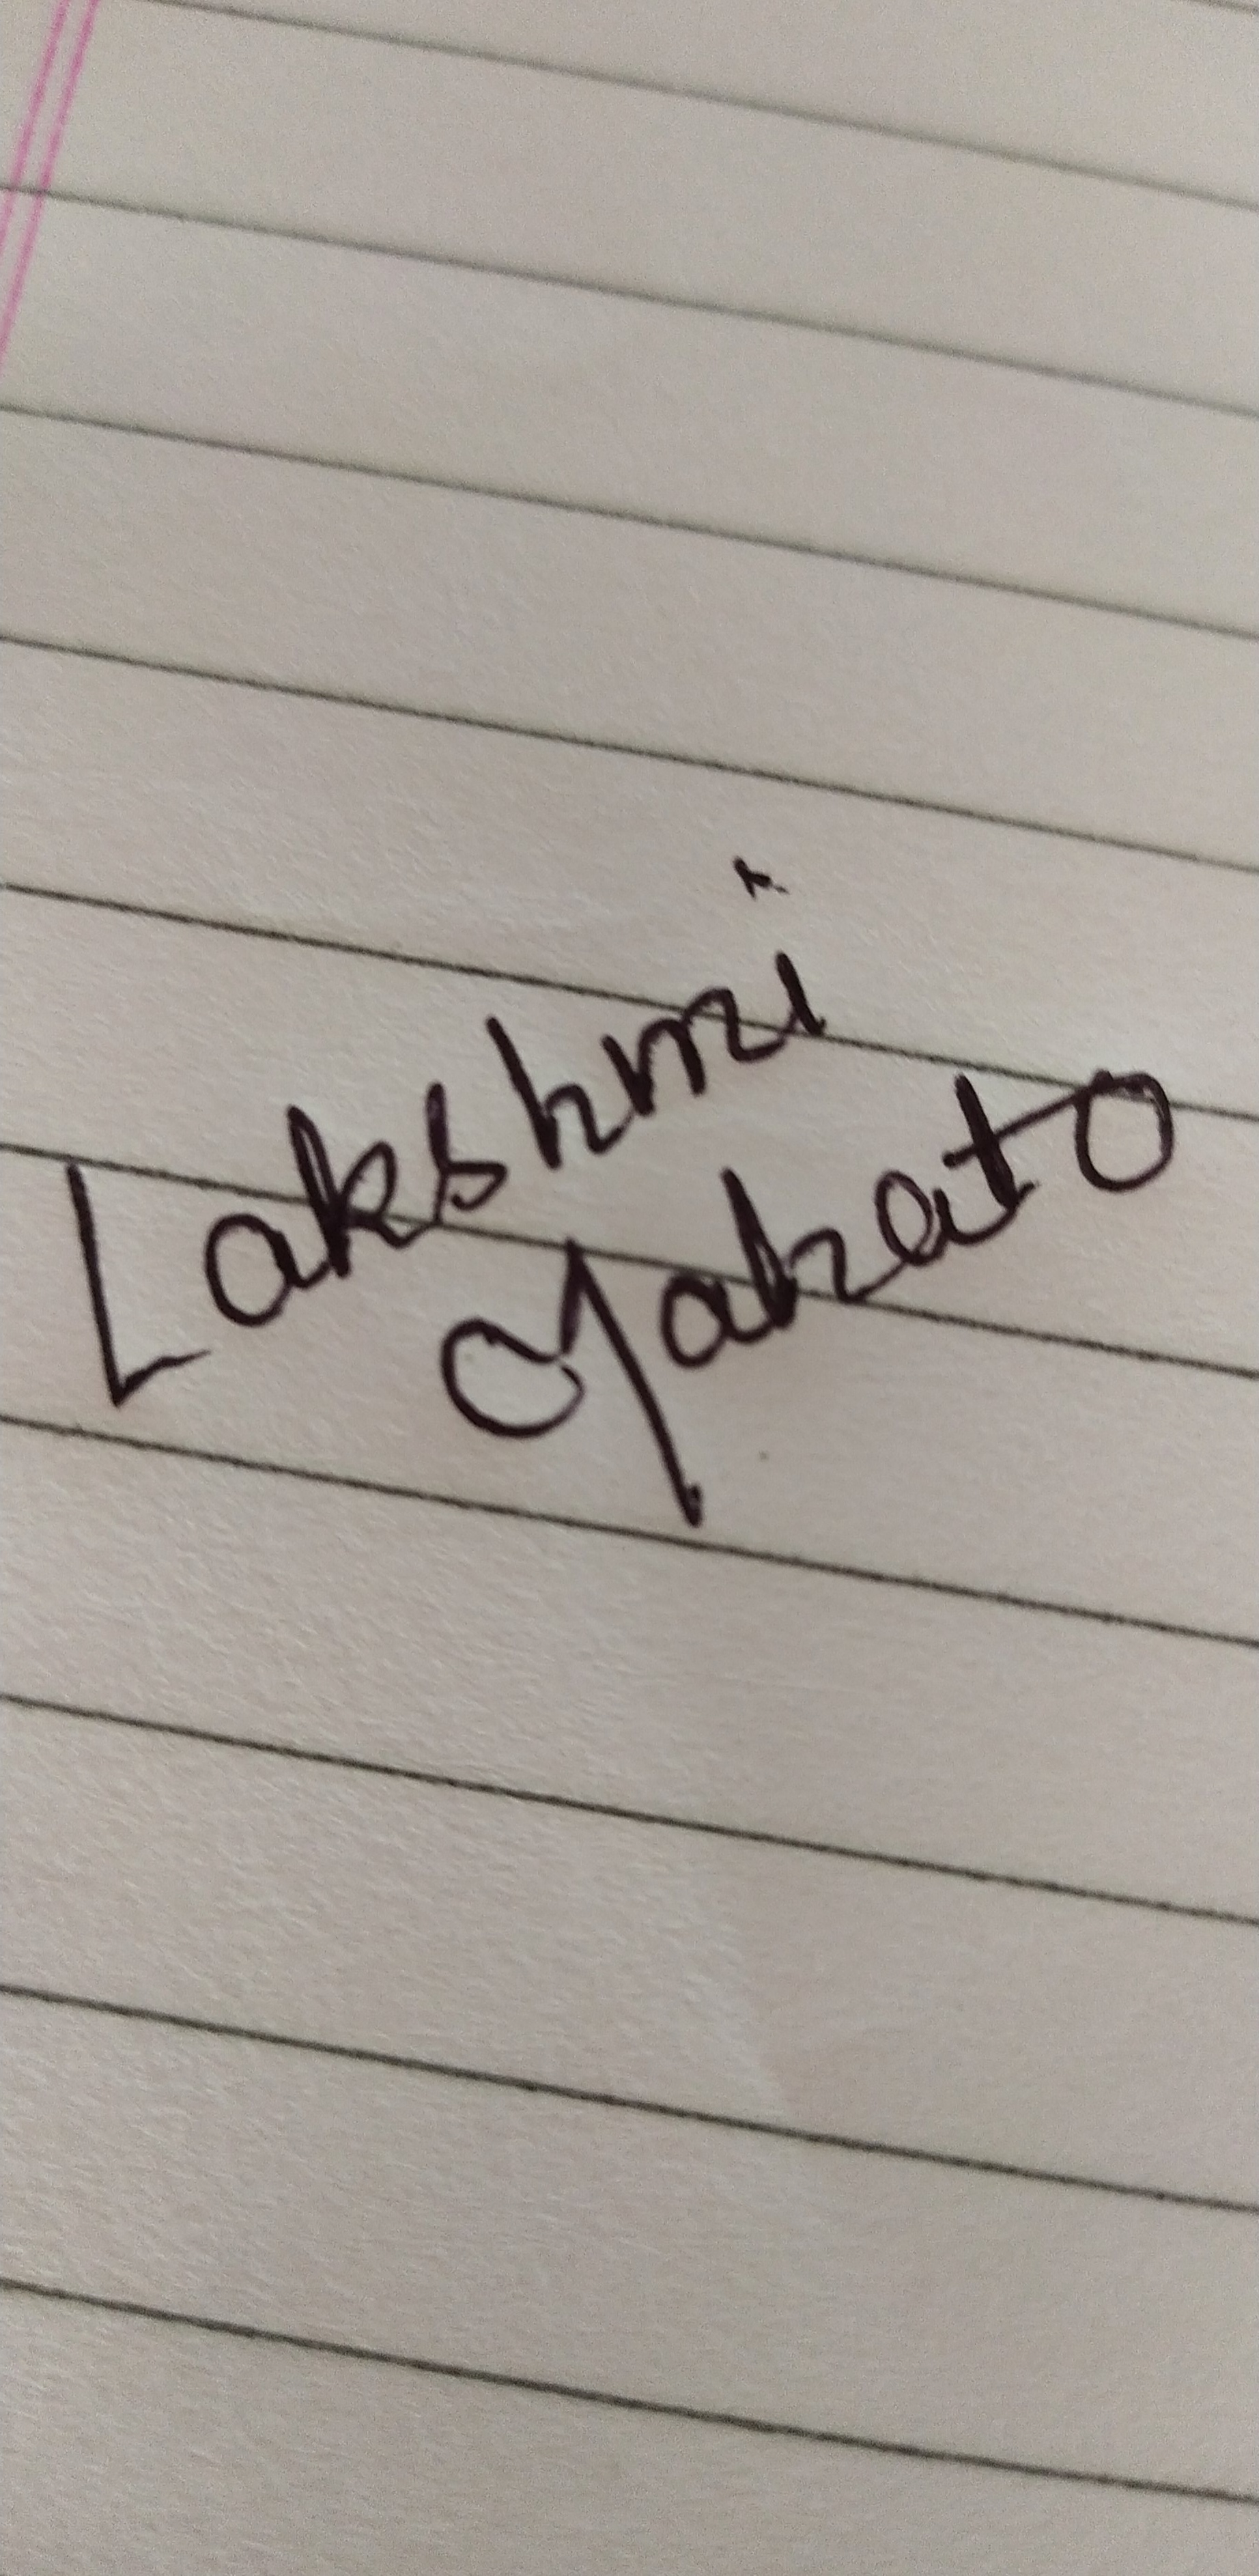 Lakshmi
Mahato